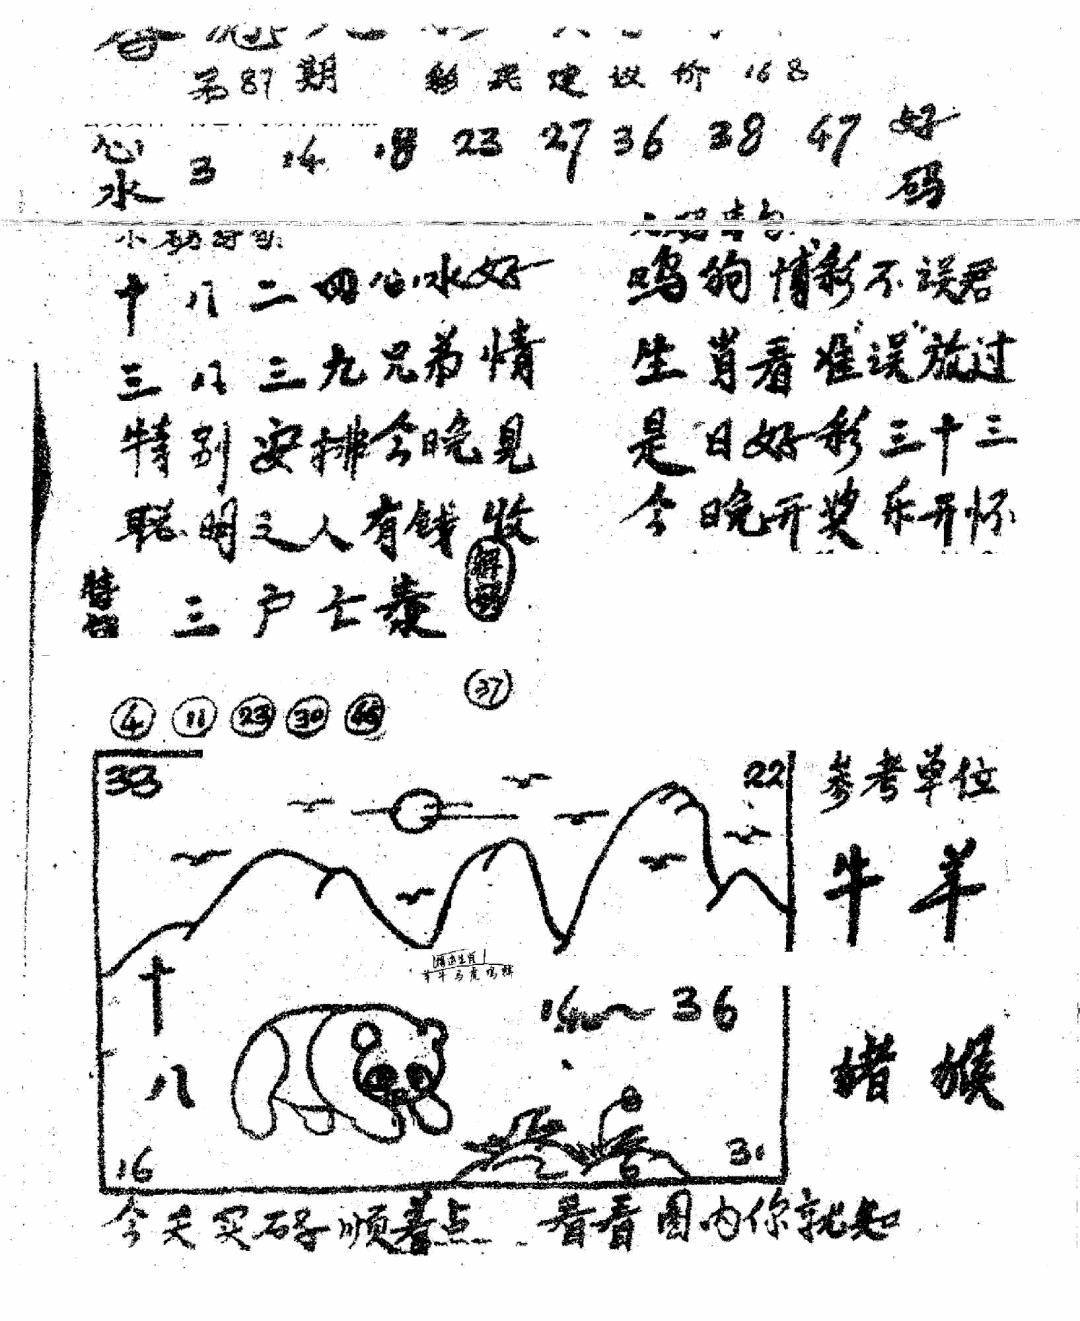 第87期 彩民建议价 168
心水 3 14 18 23 27 36 38 47 好码
十八二四心水好
三八三九兄弟情
特别安排今晚见
聪明之人有钱收
三户亡秦
鸡狗博彩不误君
生肖看准"误"放过
是日好彩三十三
今晚开奖乐开怀
37
4 11 23 30 46
33 22
参考单位
牛 羊
十八
14~36
猪 猴
16 31
今天买码顺着点 看看图内你就知